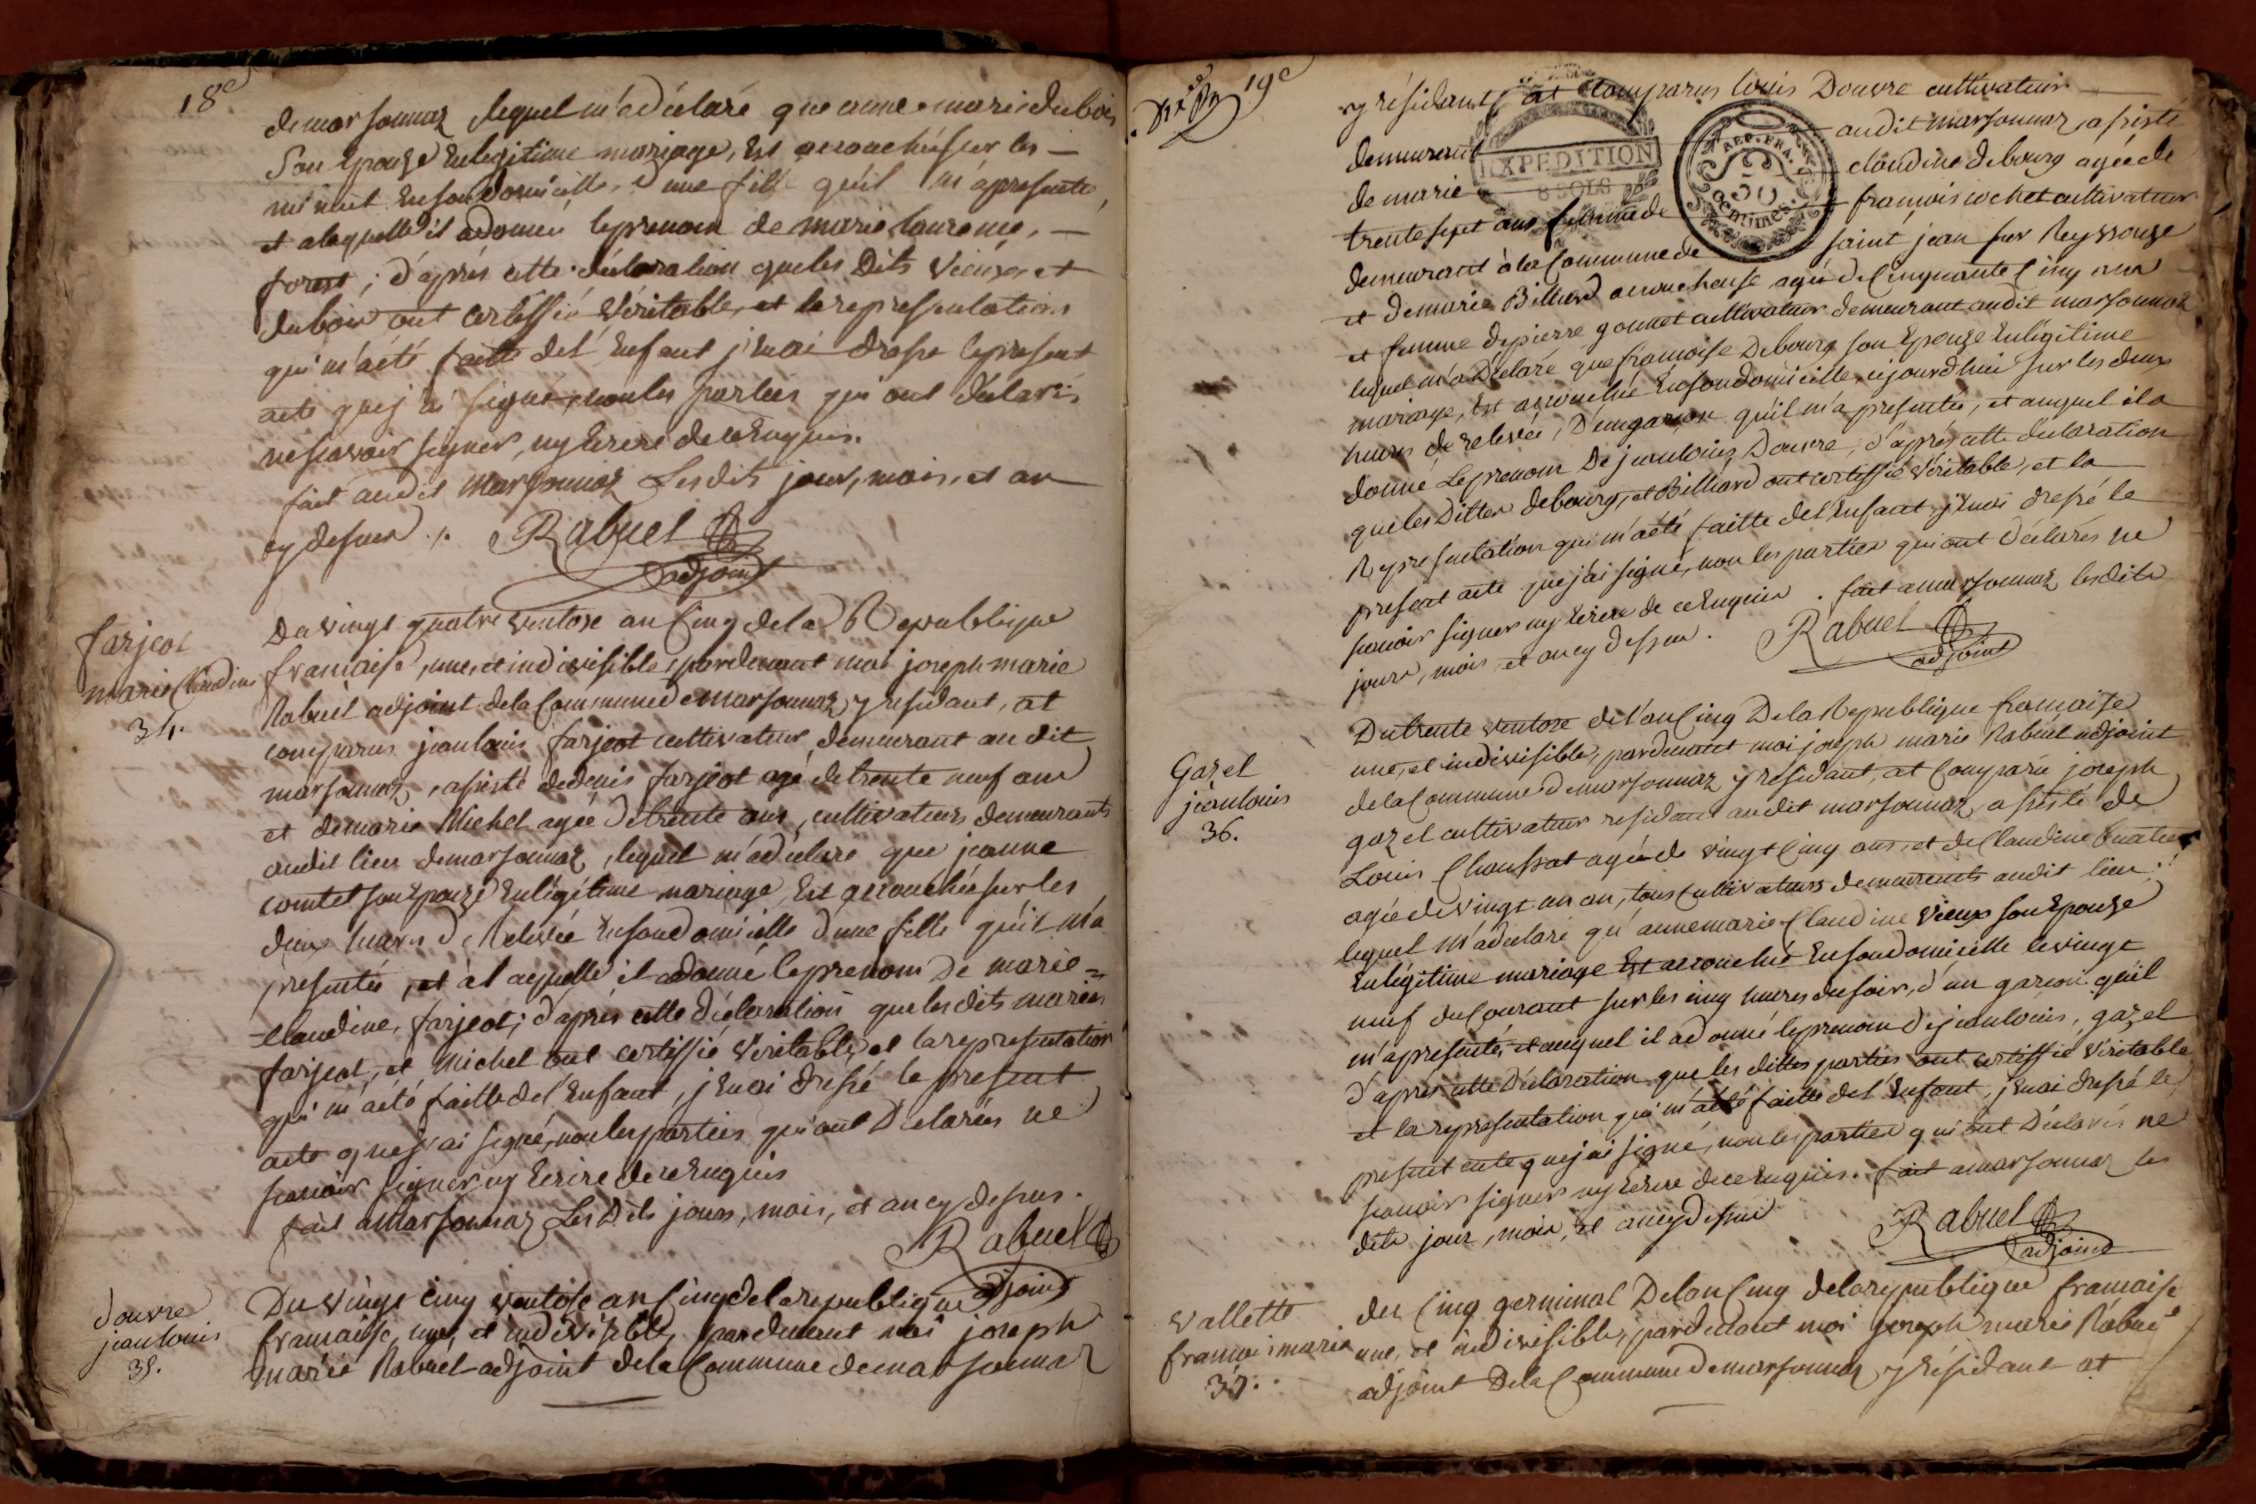 18e
de marsonnaz lequel m'a déclaré que anne marie dubois
son Epouze En legitime mariage, Est accouchée sur les
minuit En son domicille, d'une fille qu'il m'a presenté,
et a laquelle il a donné le prenom de marie laurence,
forest ; d'aprés cette déclaration que les Dits Vieux et
dubois ont certiffié Véritable, et la representation
qui m'a été faitte de l'Enfant j'Enai dressé le present
acte que j'ai signé, non les parties qui ont déclaré
ne sçavoir signer, ny Ecrire de ce Enquis.
fait audit Marsonnaz Les dits jour, mois, et an
cy dessus ./. Rabuel
adjoint
farjeot
marie Claudine
34.
Du vingt quatre ventose an Cinq de la Republique
francaise, une, et indivisible, pardevant moi joseph marie
Rabuel adjoint de la Commune de Marsonnaz y residant, at
comparus jean louis farjeot cultivateur demeurant au dit
marsonnaz, assisté de denis farjeot agé de trente neuf ans
et de marie Michel agée de trente ans, cultivateurs demeurants
audit lieu de marsonnaz, lequel m'a déclaré que jeanne
comtet son Epouze En légitime mariage, Est accouchée sur les
deux heures de Relevée En son domicille d'une fille qu'il m'a
presentée, et a laquelle il a donné le prenom De marie =
Claudine, farjeot ; d'aprés cette Déclaration que les dits mariés
farjeot, et Michel ont certiffié Véritable, et la representation
qui m'a été faitte de l'Enfant, j'Enai dressé le present
acte que j'ai signé, non les parties qui ont Déclarées ne
scavoir signer ny Ecrire de ce Enquis
fait a Marsonnaz Les Dits jours, mois, et an cy dessus.
Rabuel
adjoint
douvre
jean louis
35.
Du Vingt cinq ventose an Cinq de la republique
francaise, une, et indivisible, pardevant moi joseph
marie Rabuel adjoint de la Commune de marsonnaz
19e
y résidant, at Comparus louis Douvre cultivateur
demeurant audit marsonnaz, assisté
de marie claudine debourg agée de
trente sept ans femme de françois cochet cultivateur
demeurant à la Commune de saint jean sur Reyssouze
et de marie Billiard accoucheuse agée de Cinquante Cinq ans
et femme de pierre gonnet cultivateur demeurant audit marsonnaz
lequel m'a Déclaré que francoise Debourg son Epouze En légitime
mariage, Est accouchée En son domicille, cejourd'hui sur les deux
heures de relevée, D'un garçon qu'il m'a presentée, et auquel il a
donné Le prenom De jean louis Douvre ; d'aprés cette declaration
que les Dittes debourg, et Billiard ont certiffié Véritable, et la
Representation qui m'a été faitte de l'Enfant j'Enai dressé le
present acte que j'ai signé, non les parties qui ont Déclarés ne
scavoir signer ny Ecrire de ce Enquis. fait a marsonnaz les dits
jours, mois, et an cy dessus. Rabuel
adjoint
EXPEDITION
8 SOLS
REP. FRA.
50
centimes.
Gazel
jean louis
36.
Du trente ventose de l'an Cinq De la Republique francaise
une, et indivisible, pardevant moi joseph marie Rabuel adjoint
de la Commune de marsonnaz y residant, at Comparu joseph
gazel cultivateur residant audit marsonnaz assisté de
Louis Chaussat agée de vingt Cinq ans, et de Claudine
agée de vingt un an, tous Cultivateurs demeurents audit lieu :
lequel m'a déclaré qu'anne marie Claudine Vieux son Epouze
En légitime mariage Est accouchée En son domicille le vingt
neuf du Courant sur les cinq heures du soir, d'un garcon qu'il
m'a presenté, et auquel il a donné le prenom de jean louis, gazel
d'aprés cette Déclaration que les dittes parties ont certiffié Véritable
et la representation qui m'a été faitte de l'Enfant, j'Enai dressé le
present acte que j'ai signé, non les parties qui ont Déclarés ne
scavoir signer ny Ecrire de ce Enquis. fait a marsonnaz les
dits jour, mois, et an cy dessus Rabuel
adjoint
Vallette
francois marie
37.
du Cinq germinal De l'an Cinq de la republique francaise
une, et indivisible, pardevant moi joseph marie Rabuel
adjoint De la Commune de marsonnaz y résidant at